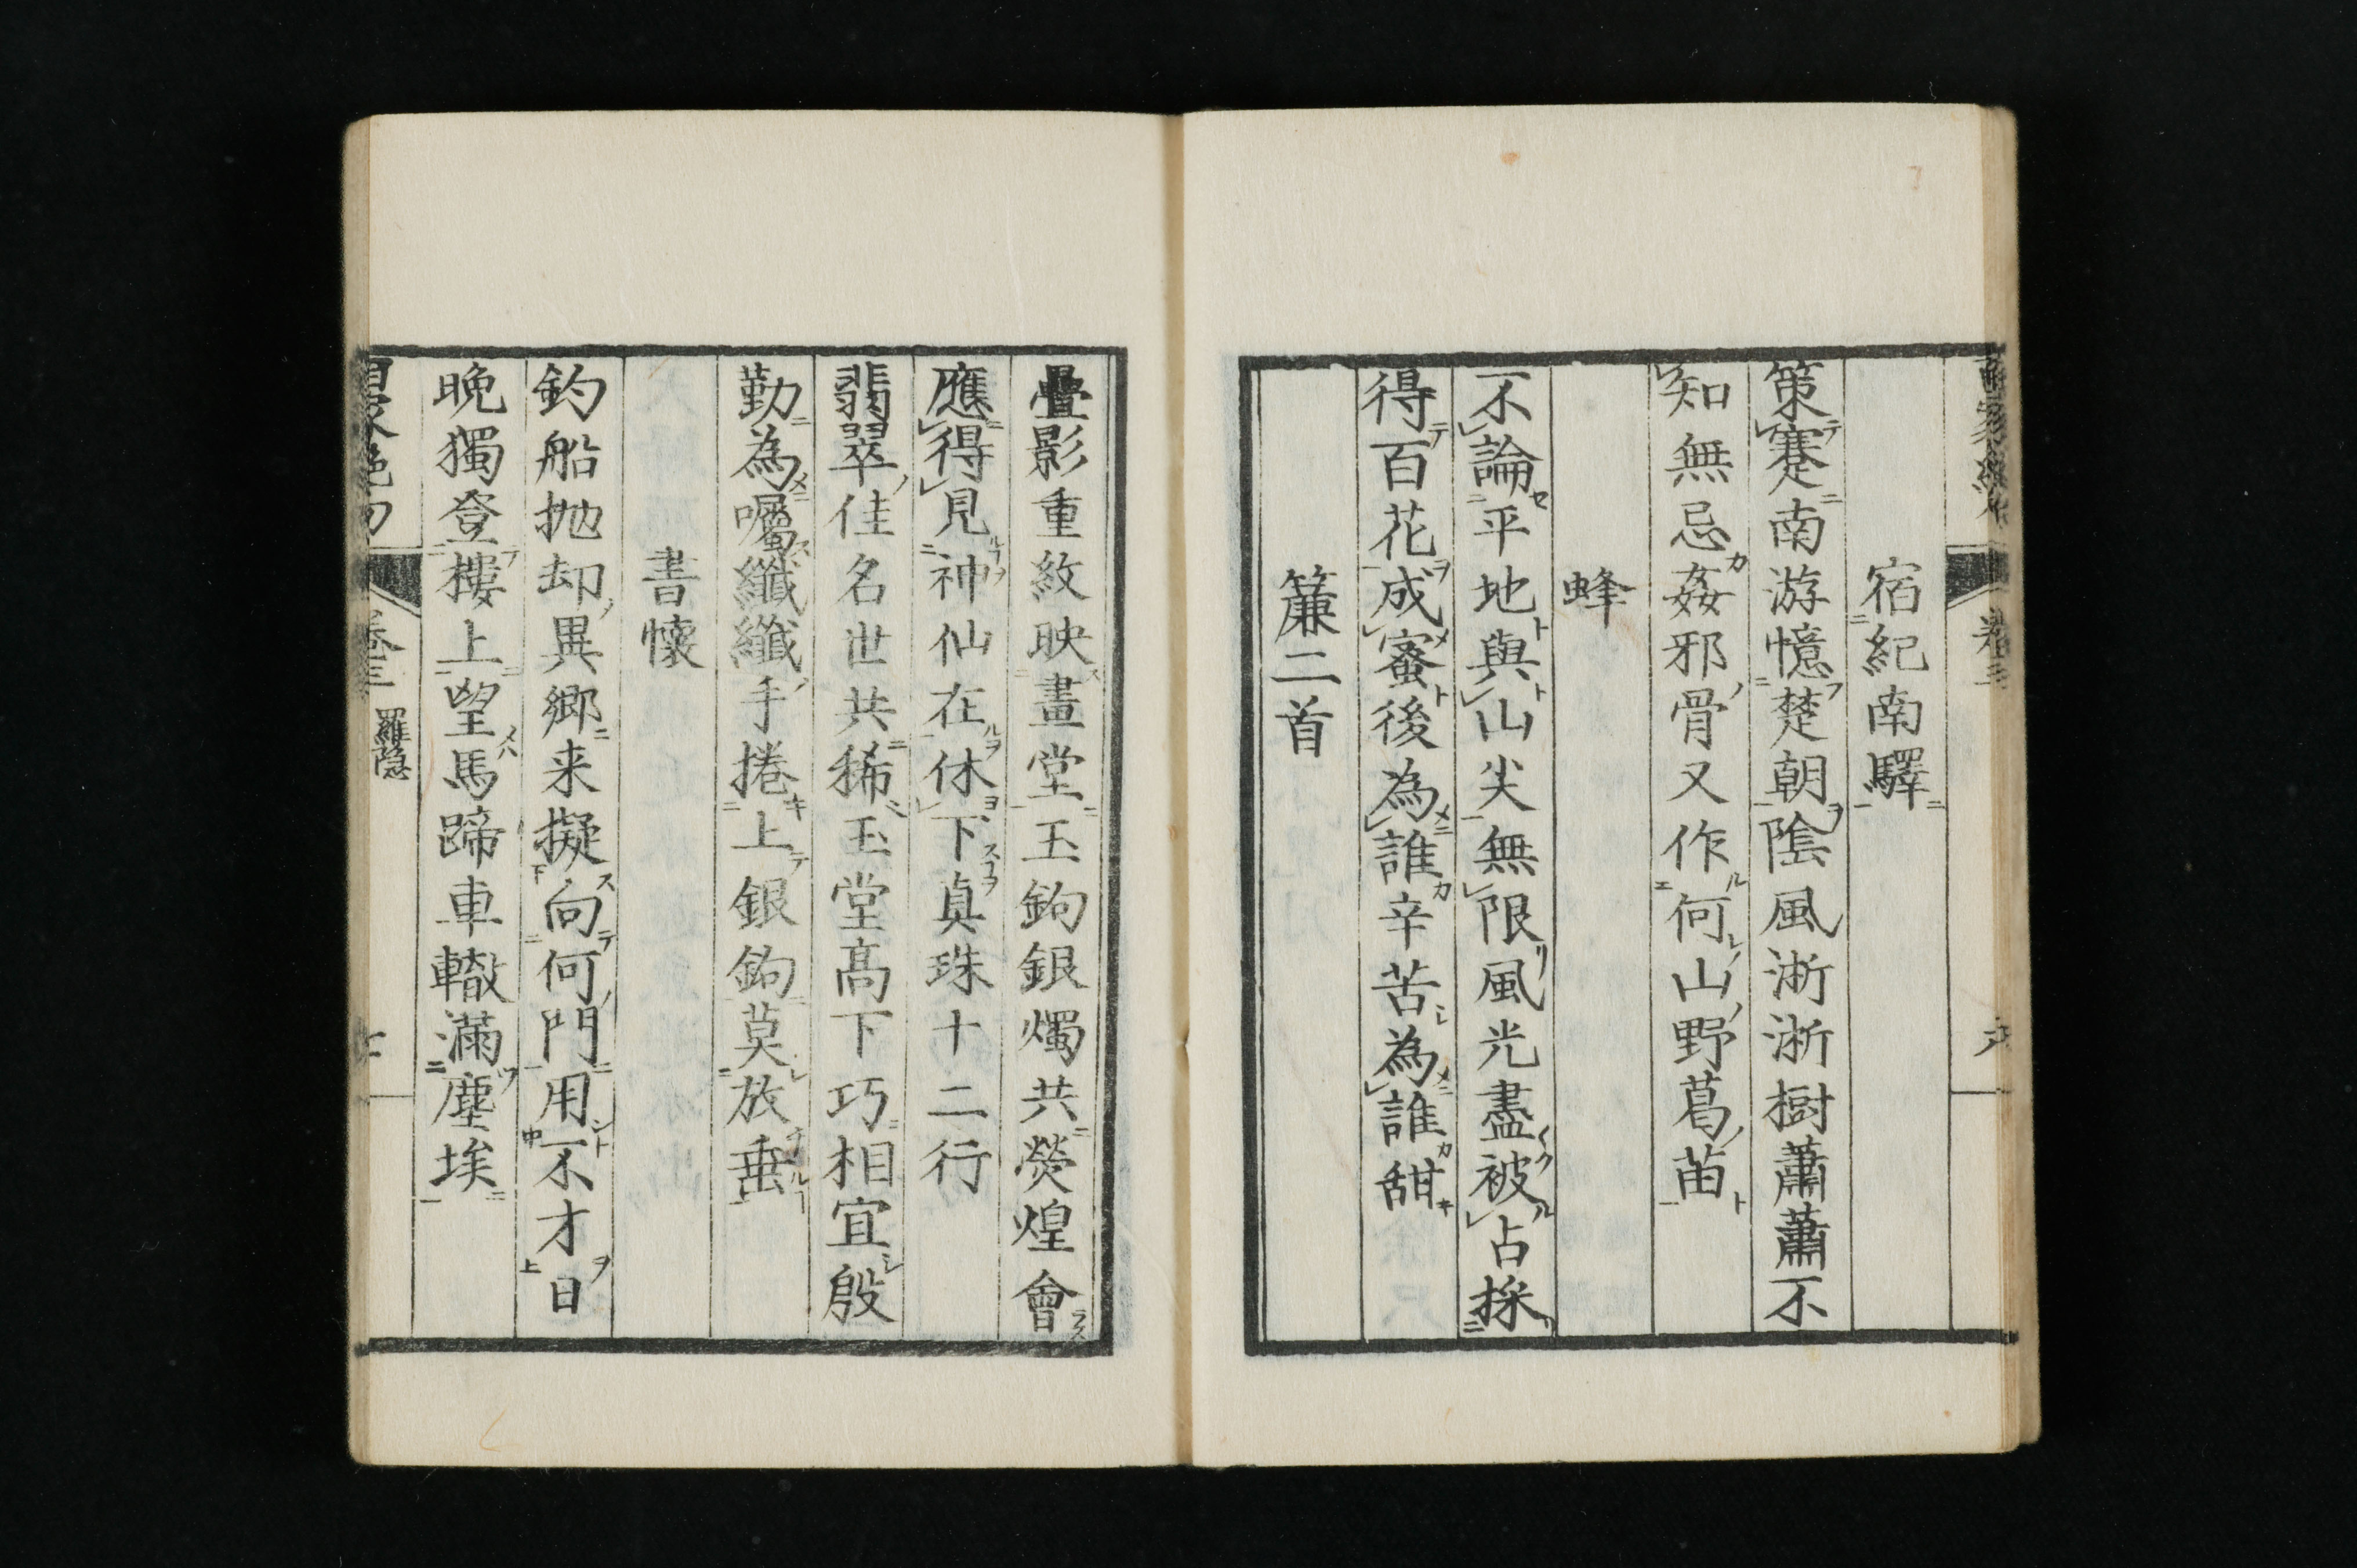 宿紀南驛
策蹇南游憶楚朝陰風淅淅樹蕭蕭不
知無忌姦邪骨又作何山野葛苗
蜂
不論平地與山尖無限風光盡被占採
得百花成蜜後為誰辛苦為誰甜
簾二首
疊影重紋映畫堂玉鉤銀燭共熒煌會
應得見神仙在休下真珠十二行
翡翠佳名世共稀玉堂高下巧相宜殷
勤為囑纖纖手捲上銀鉤莫放垂
書懷
釣船抛却異鄉来擬向何門用不才日
晚獨登樓上望馬蹄車轍滿塵埃
卷三 羅隐